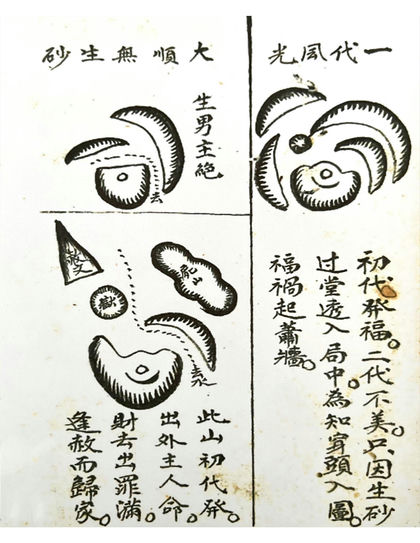 一代風光
初代發福。二代不美。只因生砂
过堂透入局中。為知穿頭入圖。
福禍起蕭牆。
大順無生砂
生男主絕
去
赦文
獄
去水
此山初代發。
出外主人命。
財去出罪滿。
逢赦而歸家。